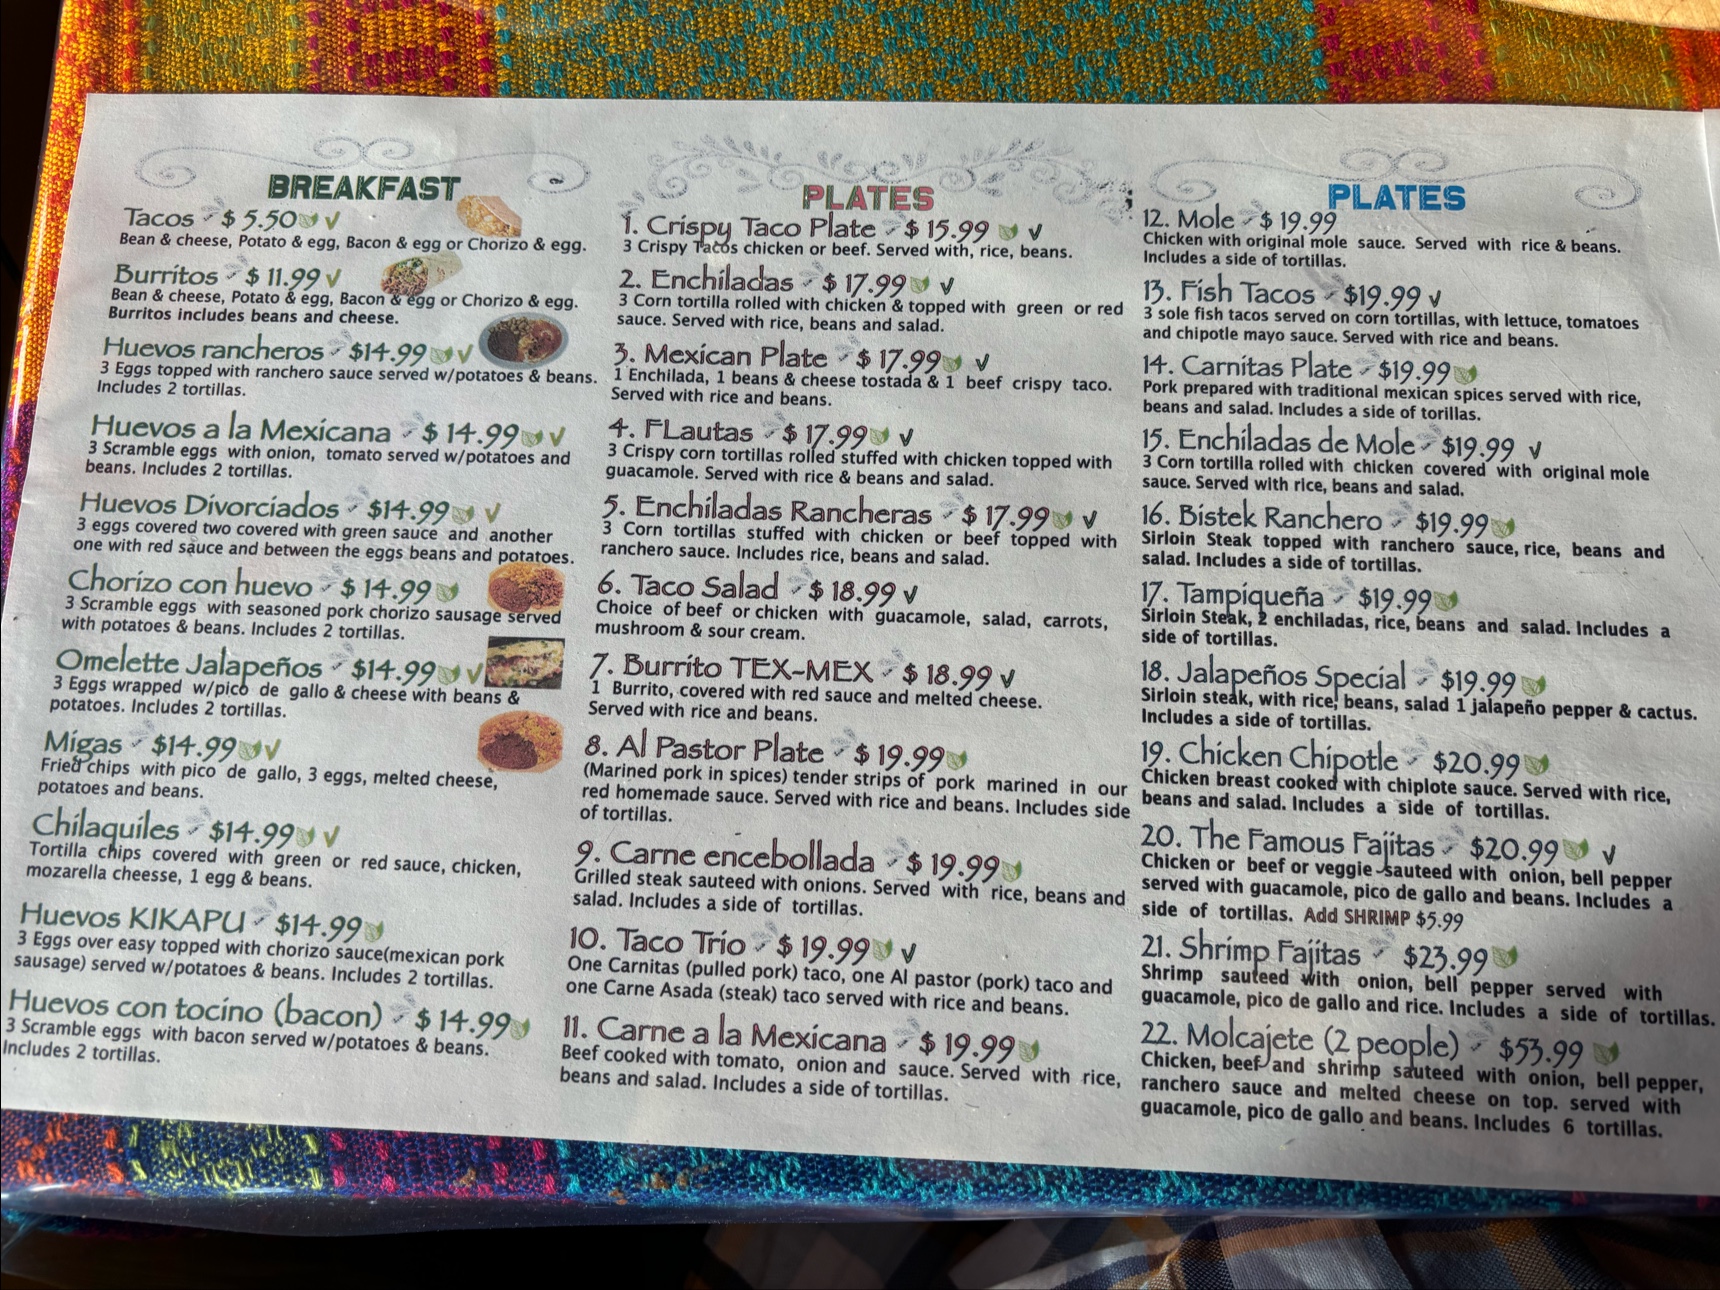 BREAKFAST
Tacos $ 5.50 √
Bean & cheese, Potato & egg, Bacon & egg or Chorizo & egg.
Burritos $ 11.99 √
Bean & cheese, Potato & egg, Bacon & egg or Chorizo & egg.
Burritos includes beans and cheese.
Huevos rancheros $14.99 √
3 Eggs topped with ranchero sauce served w/potatoes & beans.
Includes 2 tortillas.
Huevos a la Mexicana $ 14.99 √
3 Scramble eggs with onion, tomato served w/potatoes and
beans. Includes 2 tortillas.
Huevos Divorciados $14.99 √
3 eggs covered two covered with green sauce and another
one with red sauce and between the eggs beans and potatoes.
Chorizo con huevo $ 14.99
3 Scramble eggs with seasoned pork chorizo sausage served
with potatoes & beans. Includes 2 tortillas.
Omelette Jalapeños $14.99 √
3 Eggs wrapped w/pico de gallo & cheese with beans &
potatoes. Includes 2 tortillas.
Migas $14.99 √
Fried chips with pico de gallo, 3 eggs, melted cheese,
potatoes and beans.
Chilaquiles $14.99 √
Tortilla chips covered with green or red sauce, chicken,
mozarella cheesse, 1 egg & beans.
Huevos KIKAPU $14.99
3 Eggs over easy topped with chorizo sauce(mexican pork
sausage) served w/potatoes & beans. Includes 2 tortillas.
Huevos con tocino (bacon) $ 14.99
3 Scramble eggs with bacon served w/potatoes & beans.
Includes 2 tortillas.
PLATES
1. Crispy Taco Plate $ 15.99 √
3 Crispy Tacos chicken or beef. Served with, rice, beans.
2. Enchiladas $ 17.99 √
3 Corn tortilla rolled with chicken & topped with green or red
sauce. Served with rice, beans and salad.
3. Mexican Plate $ 17.99 √
1 Enchilada, 1 beans & cheese tostada & 1 beef crispy taco.
Served with rice and beans.
4. FLautas $ 17.99 √
3 Crispy corn tortillas rolled stuffed with chicken topped with
guacamole. Served with rice & beans and salad.
5. Enchiladas Rancheras $ 17.99 √
3 Corn tortillas stuffed with chicken or beef topped with
ranchero sauce. Includes rice, beans and salad.
6. Taco Salad $ 18.99 √
Choice of beef or chicken with guacamole, salad, carrots,
mushroom & sour cream.
7. Burrito TEX-MEX $ 18.99 √
1 Burrito, covered with red sauce and melted cheese.
Served with rice and beans.
8. Al Pastor Plate $ 19.99
(Marined pork in spices) tender strips of pork marined in our
red homemade sauce. Served with rice and beans. Includes side
of tortillas.
9. Carne encebollada $ 19.99
Grilled steak sauteed with onions. Served with rice, beans and
salad. Includes a side of tortillas.
10. Taco Trio $ 19.99 √
One Carnitas (pulled pork) taco, one Al pastor (pork) taco and
one Carne Asada (steak) taco served with rice and beans.
11. Carne a la Mexicana $ 19.99
Beef cooked with tomato, onion and sauce. Served with rice,
beans and salad. Includes a side of tortillas.
PLATES
12. Mole $ 19.99
Chicken with original mole sauce. Served with rice & beans.
Includes a side of tortillas.
13. Fish Tacos $19.99 √
3 sole fish tacos served on corn tortillas, with lettuce, tomatoes
and chipotle mayo sauce. Served with rice and beans.
14. Carnitas Plate $19.99
Pork prepared with traditional mexican spices served with rice,
beans and salad. Includes a side of torillas.
15. Enchiladas de Mole $19.99 √
3 Corn tortilla rolled with chicken covered with original mole
sauce. Served with rice, beans and salad.
16. Bistek Ranchero $19.99
Sirloin Steak topped with ranchero sauce, rice, beans and
salad. Includes a side of tortillas.
17. Tampiqueña $19.99
Sirloin Steak, 2 enchiladas, rice, beans and salad. Includes a
side of tortillas.
18. Jalapeños Special $19.99
Sirloin steak, with rice, beans, salad 1 jalapeño pepper & cactus.
Includes a side of tortillas.
19. Chicken Chipotle $20.99
Chicken breast cooked with chiplote sauce. Served with rice,
beans and salad. Includes a side of tortillas.
20. The Famous Fajitas $20.99 √
Chicken or beef or veggie sauteed with onion, bell pepper
served with guacamole, pico de gallo and beans. Includes a
side of tortillas. Add SHRIMP $5.99
21. Shrimp Fajitas $23.99
Shrimp sauteed with onion, bell pepper served with
guacamole, pico de gallo and rice. Includes a side of tortillas.
22. Molcajete (2 people) $53.99
Chicken, beef and shrimp sauteed with onion, bell pepper,
ranchero sauce and melted cheese on top. served with
guacamole, pico de gallo and beans. Includes 6 tortillas.